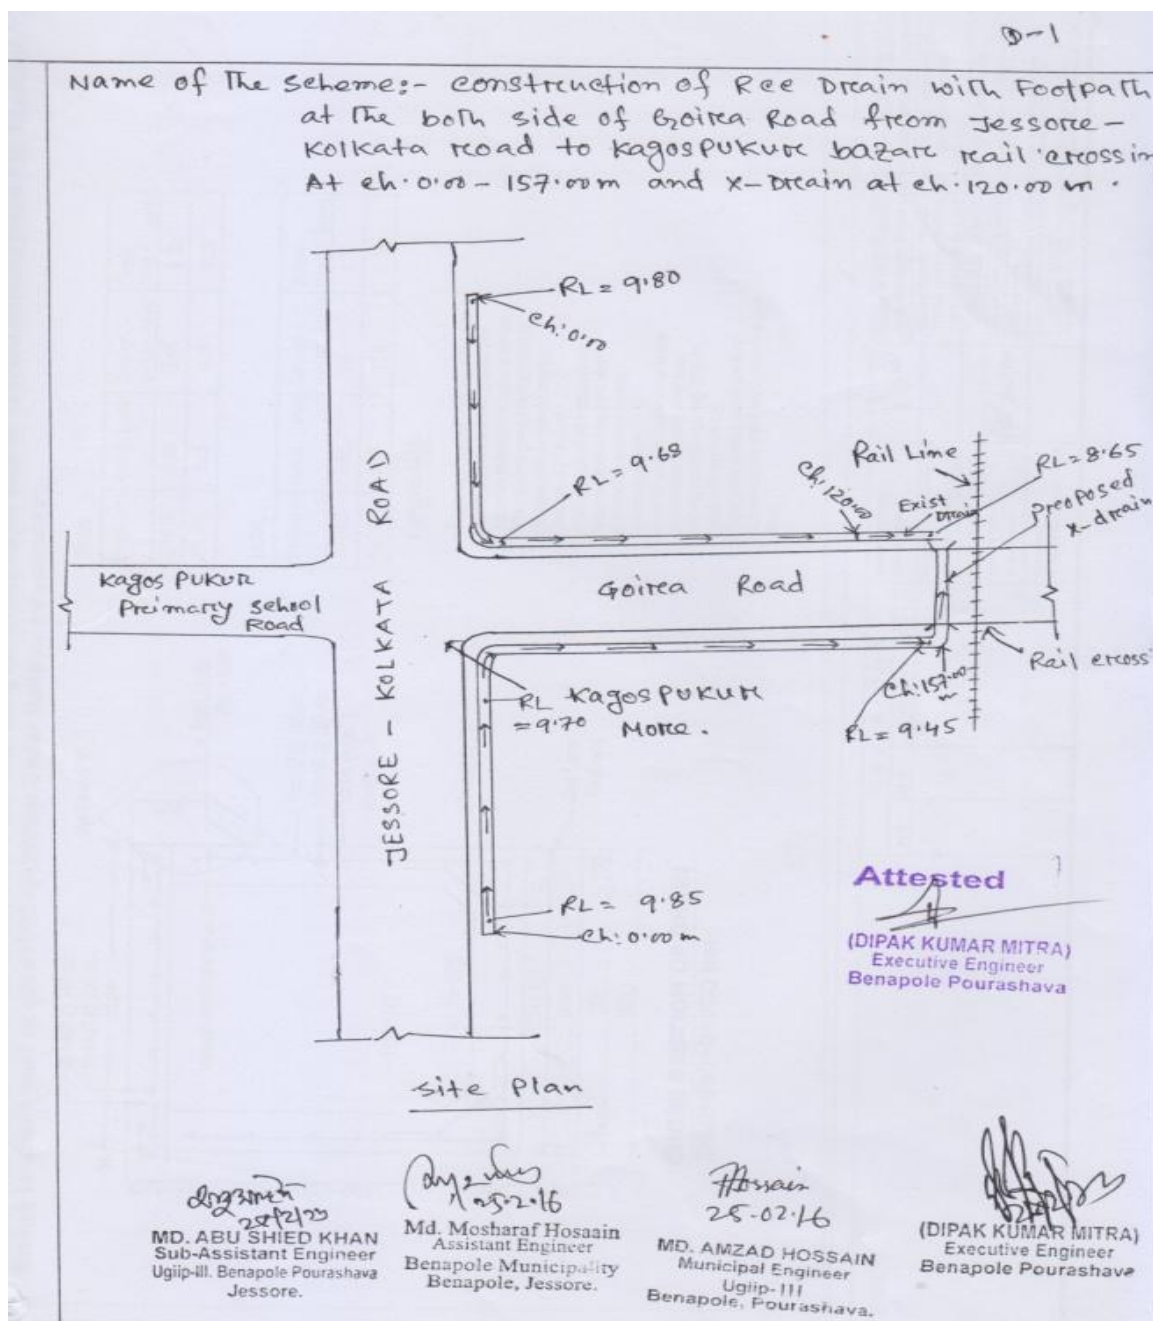 D-1
Name of The Scheme:- construction of Rcc Drain with Footpath
at The both side of Goirea Road from Jessore-
Kolkata road to Kagospukur bazar rail crossin
At ch.0.00 - 157.00m and x-Drain at ch.120.00 m.
RL = 9.80
Ch: 0.00
RL = 9.68
Ch: 120.00
Rail Line
Exist
Drain
RL = 8.65
Proposed
x-drain
Kagos Pukur
Primary School
Road
JESSORE - KOLKATA ROAD
Goirea Road
Rail cross
Ch: 157.00
m
RL
= 9.70
Kagospukur
More.
RL = 9.45
RL = 9.85
Ch: 0.00 m
Attested
(DIPAK KUMAR MITRA)
Executive Engineer
Benapole Pourashava
Site Plan
MD. ABU SHIED KHAN
Sub-Assistant Engineer
Ugiip-III. Benapole Pourashava
Jessore.
25.2.16
Md. Mosharaf Hosaain
Assistant Engineer
Benapole Municipality
Benapole, Jessore.
Hossain
25.02.16
MD. AMZAD HOSSAIN
Municipal Engineer
Ugiip-III
Benapole, Pourashava.
(DIPAK KUMAR MITRA)
Executive Engineer
Benapole Pourashava